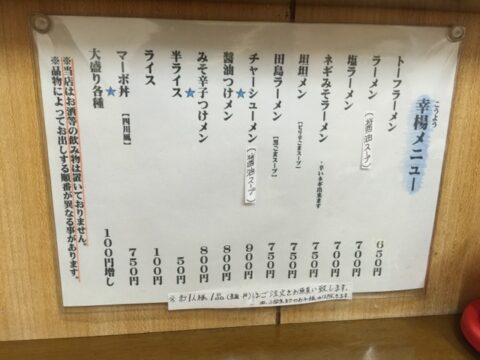 こうよう
幸楊メニュー
トーフラーメン 650円
ラーメン(醤油スープ) 700円
塩ラーメン 700円
ネギみそラーメン ・辛いネギ出来ます 750円
坦坦メン [ピリ辛ごまスープ] 750円
田島ラーメン [黒ごまスープ] 750円
チャーシューメン(醤油スープ) 900円
★
醤油つけメン 800円
みそ辛子つけメン 800円
★
半ライス 50円
ライス 100円
マーボ丼 [四川風] 750円
★
大盛り各種 100円増し
※当店はお酒等の飲み物は置いておりません。
※品物によってお出しする順番が異なる事があります。
※お1人様1品(麺・丼)はご注文をお願い致します。